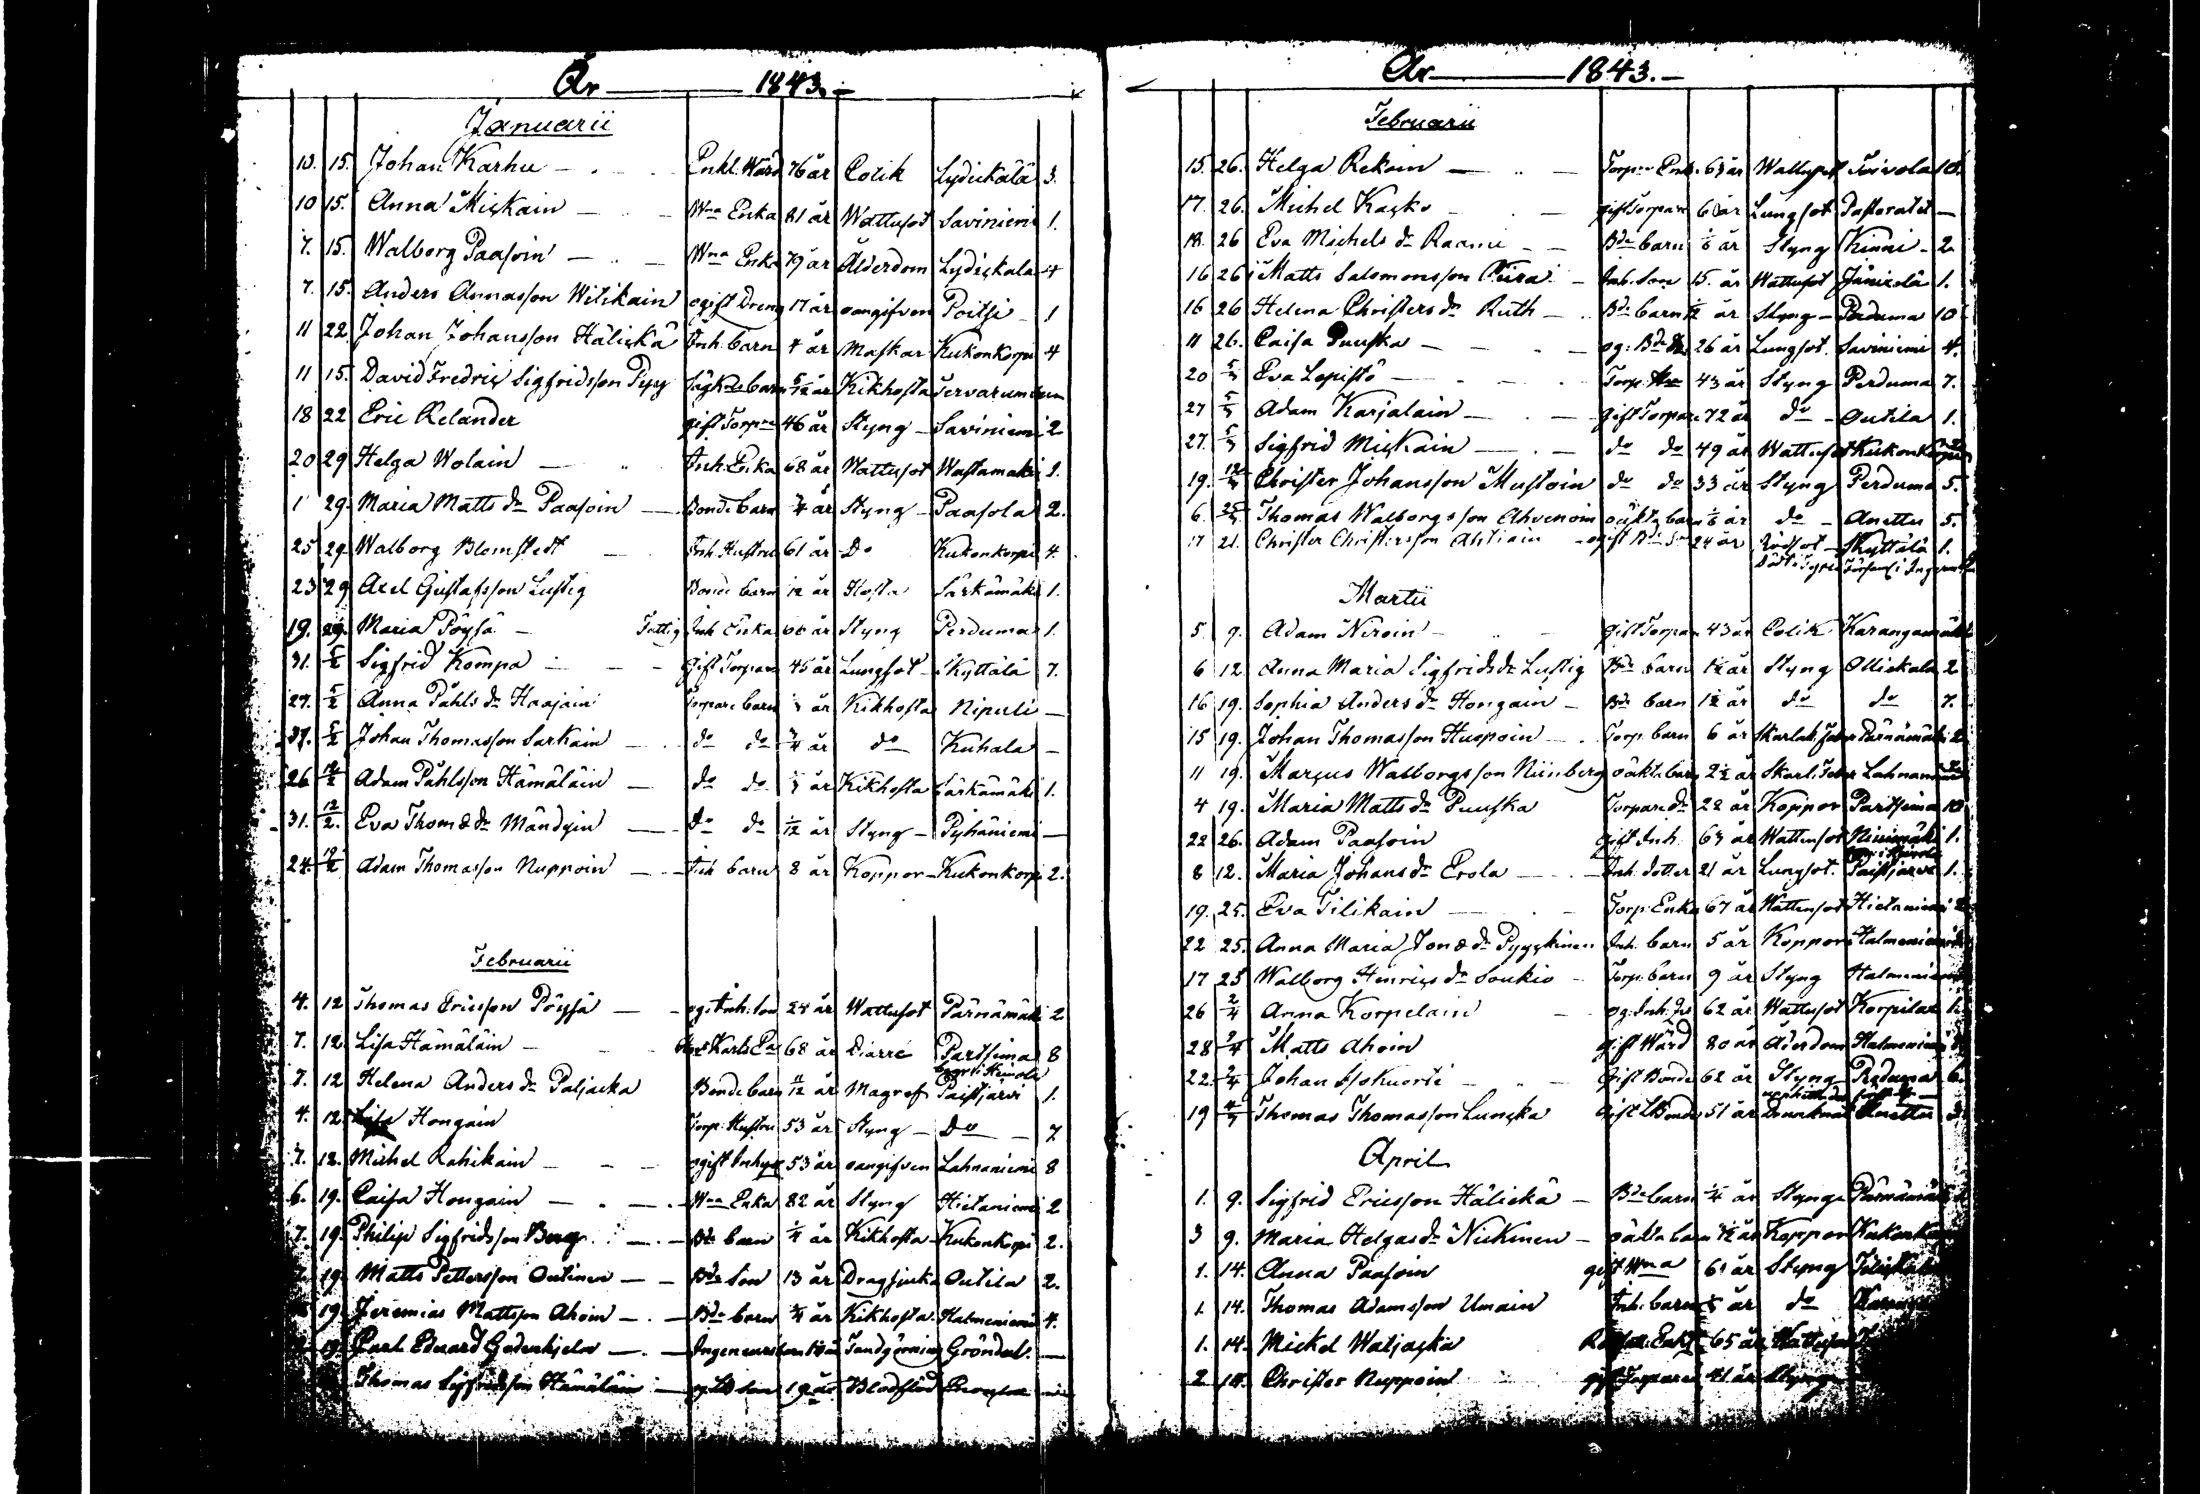 År 1843.
Januarii
10. 15. Johan Karhu Enkl. Wärd 76 år Colik Lydickälä 3.
10 15. Anna Mickain Wna Enka 81 år Wattusot Saviniemi 1.
7. 15. Walborg Paasoin Wna Enka 79 år Ålderdom Lydickala 4
7. 15. Anders Annasson Witikain ogift Dreng 17 år oangifven Poitsi 1
11 22 Johan Johansson Hälickä Inh. barn 4 år Maskar Kukonkorpi 4
11 15. David Fredric Sigfridsson Pyy barn 5/12 år Kikhosta
18 22 Eric Relander gift Torpare 46 år Styng Saviniemi 2
20 29 Helga Wolain Inh. Enka 68 år Wattusot Wastamäki 1.
1 29. Maria Matts dr Paasoin Bonde barn 3/4 år Styng Paasola 2.
25 29. Walborg Blomstedt Inh. Hustru 61 år Do Kukonkorpi 4.
23 29 Axel Gustafsson Lustig Bonde barn 1/12 år Hosta Särkämäki 1.
19. 29. Maria Pöysä Fattig Inh Enka 66 år Styng Perduma 1.
31. 5/2 Sigfrid Kompa Gift Torpare 45 år Lungsot Kyttälä 7.
27. 5/2 Anna Påhls dr Haajain Torpare barn år Kikhosta Nipuli
27. 5/2 Johan Thomasson Sarkain do do 3/4 år do Kuhala
26 12/2 Adam Påhlsson Hämäläin do do år Kikhosta Särkämäki 1.
31. 12/2. Eva Thomæ dr Mändyin do do 1/12 år Styng Pyhäniemi
24. 12/2 Adam Thomasson Nuppoin Inh barn 8 år Koppor Kukonkorpi 2.
Februarii
4. 12 Thomas Ericsson Pöysä og: Inh. son 24 år Wattusot Pärnämäki 2
7. 12. Lisa Hämäläin 68 år Diarré Partsima 8
7. 12 Helena Anders dr Paljacka Bonde barn 11/12 år Magref Paistjärvi 1.
4. 12. Lisa Hongain Torp. Hustru 53 år Styng Do 7
7. 12. Michel Rahikain ogift Inhys 53 år oangifven Lahnaniemi 8
6. 19. Caisa Hongain Wna Enka 82 år Styng Hietaniemi 2
7. 19. Philip Sigfridsson Berg Bde barn 1/4 år Kikhosta Kukonkorpi 2.
19. Matts Pettersson Outinen Bde Son 13 år Dragsjuka Outila 2.
19. Jeremias Mattsson Ahoin Bde barn 3/4 år Kikhosta Halmeniemi 4.
19. Carl Eduard Gadenhjelm Tandgörning Gröndal.
Thomas Sigfridsson Hämäläin 19 år Blodstörd
År 1843.
Februarii
15. 26. Helga Rekoin Torpar Enk. 63 år Wattusot Toivola 10.
17. 26. Michel Kacko gift Torpare 68 år Lungsot Pastoratet
18. 26 Eva Michels dr Raami Bde barn 1/6 år Styng Kinni 2.
16 26 Matts Salomonsson Piira Inh. Son 15. år Wattusot Jänicälä 1.
16 26 Helena Christers dr Ruth Bde barn år Styng Perduma 10
11 26. Caisa Puuska og: Bde 26 år Lungsot. Saviniemi 4.
20 5/3 Eva Lepistö Torp: 43 år Styng Perduma 7.
27 5/3 Adam Karjalain gift Torpare 72 år do Outila 1.
27. 5/3 Sigfrid Mickain do do 49 år Wattusot Kukonkorpi
19. 12/3 Christer Johansson Mustoin do do 33 år Styng Perduma 5.
6. 25/3 Thomas Walborgsson Ahvenoin oäkta barn 1/6 år do Anettu 5.
17 21. Christer Christersson Ahtiain ogift Bde Son 24 år Rödsot Kyttälä 1.
Martii
5. 9. Adam Niroin gift Torpare 43 år Colik Karangamäki
6 12. Anna Maria Sigfrids dr Lustig Bde barn 1½ år Styng Ollickala 2
16 19. Sophia Anders dr Hongain Bde barn 1½ år do do 7.
15 19. Johan Thomasson Huupoin Torp barn 6 år Skarlak: feber Pärnämäki 2
11 19. Marcus Walborgsson Niinberg oäkta barn 2½ år Skarl. Feber Lahnaniemi
4 19. Maria Matts dr Puuska Torpare dr 28 år Koppor Partsima 10
22 26. Adam Paasoin gift Inh. 63 år Wattusot Niinimäki 1.
8 12. Maria Johans dr Erola Inh. dotter 21 år Lungsot. Paistjärvi 1.
19. 25. Eva Tilikain Torp. Enka 67 år Wattusot Hietaniemi 2
22 25. Anna Maria Jonæ dr Pyyckinen Inh. barn 5 år Koppor Halmeniemi
17 25 Walborg Henrics dr Soukio Torp. barn 9 år Styng Halmeniemi
26 2/4 Anna Korpelain og: Inh. 62 år Wattusot Korpilax 1.
28 2/4 Matts Ahoin gift Wärd 80 år Ålderdom Halmeniemi
22. 2/4 Johan Gift Bonde 62 år Styng Perduma 6.
19 4/3 Thomas Thomasson Luncka gift Bonde 51 år Drunknad Anettu 3.
April
1. 9. Sigfrid Ericsson Hälickä Bde barn 1/4 år Styng Pärnämäki
3 9. Maria Helgas dr Nickinen oäkta barn år Koppor Kukonkorpi
1. 14. Anna Paasoin gift Wna 61 år Styng
1. 14. Thomas Adamsson Umain Inh. barn år do
1. 14. Mickel Waljacka 65 år Wattusot
2 14. Christer Nuppoin gift Torpare 41 år Styng